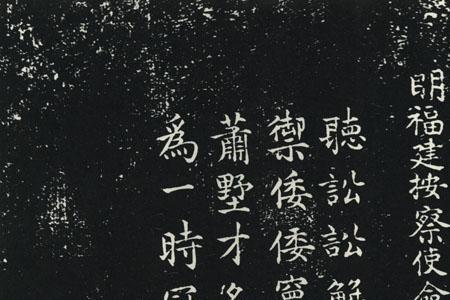 明福建按察使僉
聽訟訟解
禦倭倭寧
蕭墅才名
爲一時